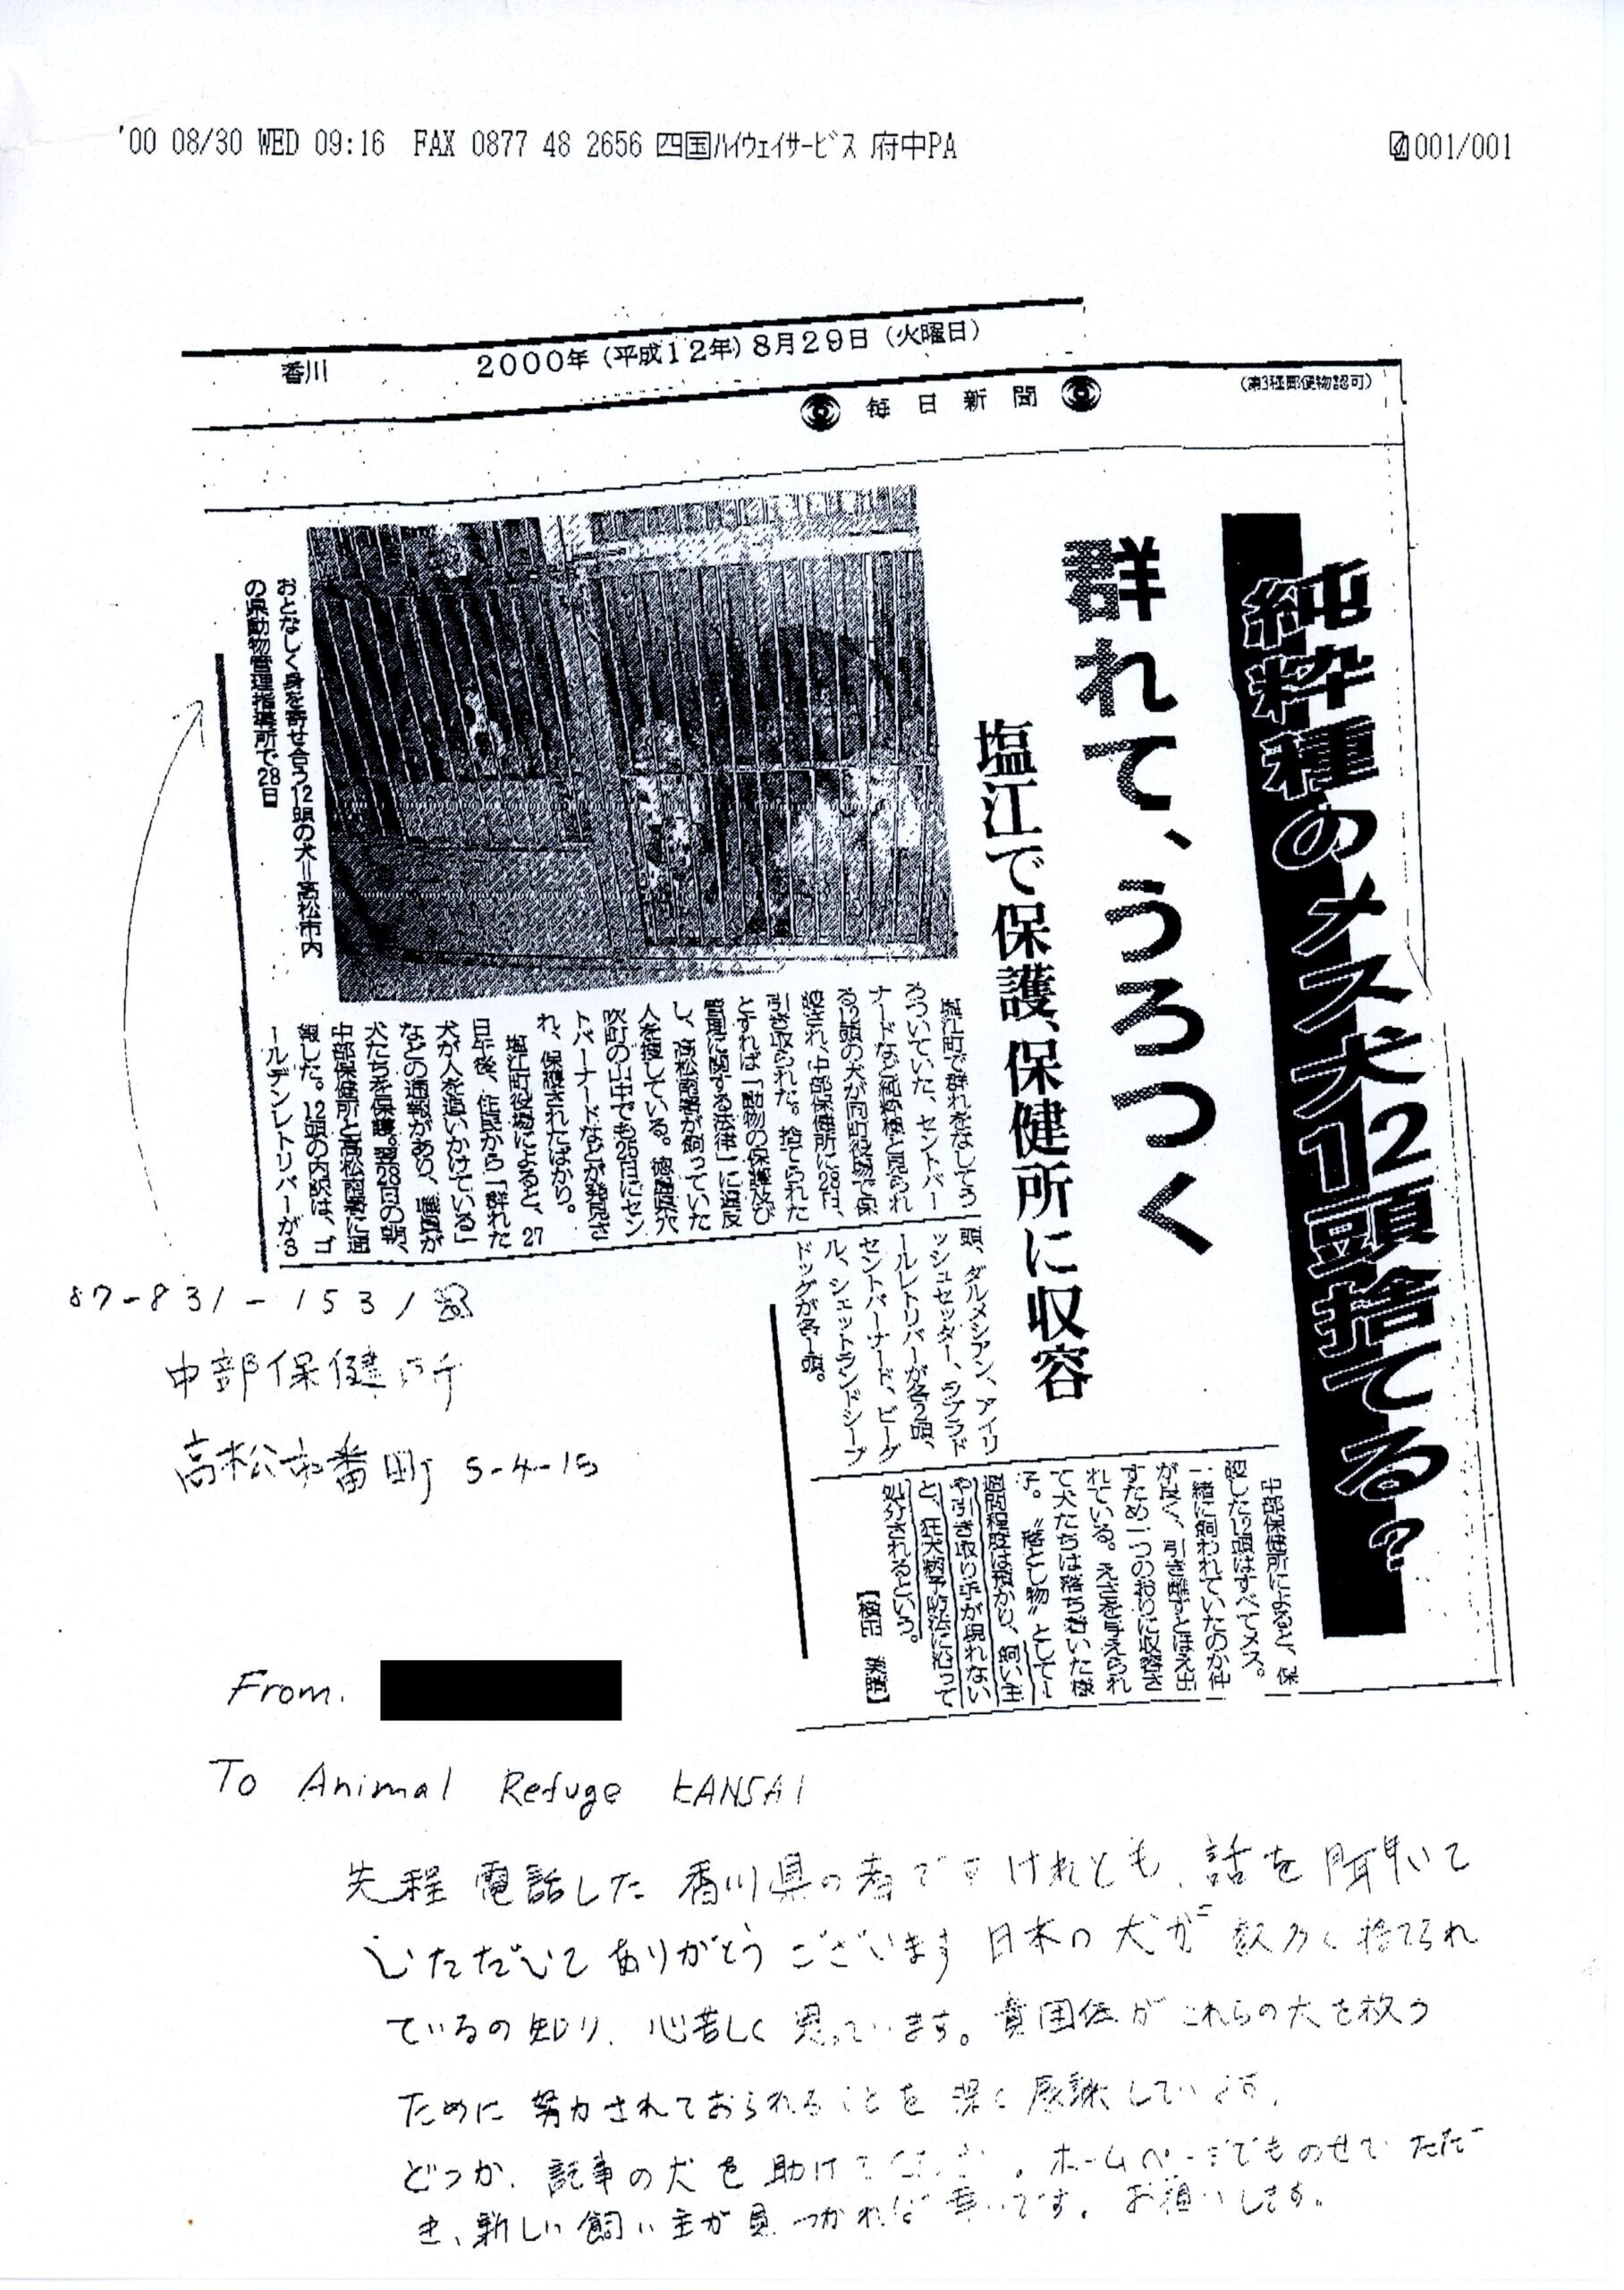 '00 08/30 WED 09:16 FAX 0877 48 2656 四国ハイウェイサービス 府中PA
001/001
香川
2000年(平成12年)8月29日(火曜日)
毎日新聞
(第3種郵便物認可)
純粋種のメス犬12頭捨てる?
群れて、うろつく
塩江で保護、保健所に収容
おとなしく身を寄せ合う12頭の犬=高松市内
の県動物管理指導所で28日
塩江町で群れをなしてう
ろついていた、セントバー
ナードなど純粋種と見られ
る12頭の犬が同町役場で保
護され、中部保健所に28日、
引き取られた。捨てられた
とすれば「動物の保護及び
管理に関する法律」に違反
し、高松南署が飼っていた
人を捜している。徳島県穴
吹町の山中でも26日にセン
トバーナードなどが発見さ
れ、保護されたばかり。
塩江町役場によると、27
日午後、住民から「群れた
犬が人を追いかけている」
などの通報があり、職員が
犬たちを保護。翌28日の朝、
中部保健所と高松南署に通
報した。12頭の内訳は、ゴ
ールデンレトリバーが3
頭、ダルメシアン、アイリ
ッシュセッター、ラブラド
ールレトリバーが各2頭、
セントバーナード、ビーグ
ル、シェットランドシープ
ドッグが各1頭。
中部保健所によると、保
護した12頭はすべてメス。
一緒に飼われていたのか仲
が良く、引き離すとほえ出
すため一つのおりに収容さ
れている。えさを与えられ
て犬たちは落ち着いた様
子。“落とし物”として1
週間程度は預かり、飼い主
や引き取り手が現れない
と、狂犬病予防法に沿って
処分されるという。
87-831-1531
中部保健所
高松市番町 5-4-15
From.
To Animal Refuge KANSAI
先程 電話した 香川県の者ですけれども、話を聞いて
いただいて ありがとうございます 日本の犬が 数多く捨てられ
ているの知り、心苦しく 思っています。貴団体が これらの犬を救う
ために 努力されておられることを 深く感謝しています。
どうか、記事の犬を助けてください。ホームページでものせていただ
き、新しい飼い主が見つかれば幸いです。お願いします。